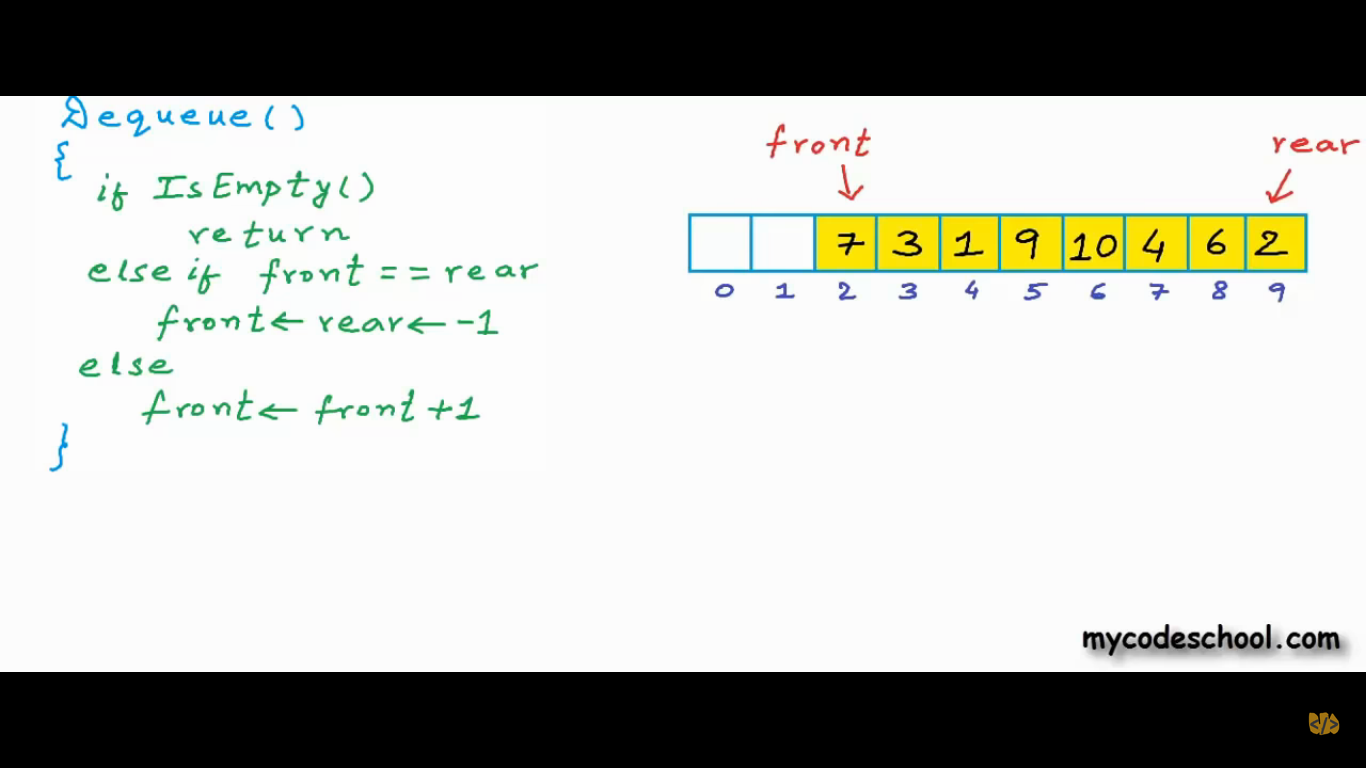 Dequeue()
{
if IsEmpty()
return
else if front == rear
front ← rear ← -1
else
front ← front +1
}
front
rear
7 3 1 9 10 4 6 2
0 1 2 3 4 5 6 7 8 9
mycodeschool.com